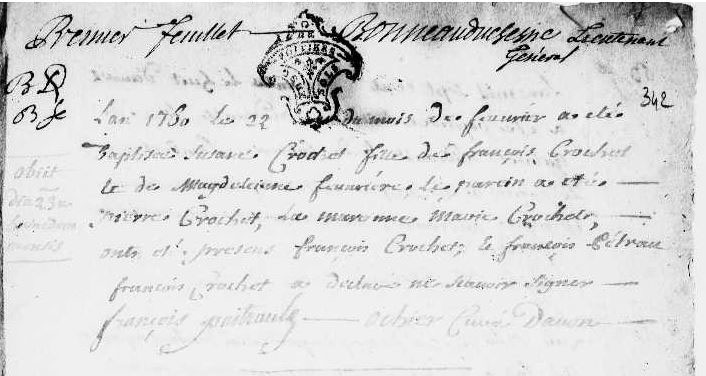 Premier feuillet Bonneauduchesne Lieutenant
Général
342
B
B
Lan 1760 le 22 du mois de feuvrier a eté
Baptisée Susane Crochet fille de françois Crochet
le de Magdeleiene feuvriére, le parein a eté
pierre Crochet, la marenne Marie Crochet,
onts et presens françois Crochet, le françois Pétrau
françois Crochet a declare ne scavoir signer
françois poitrault ochier Curé Davon
obiit
die 23a